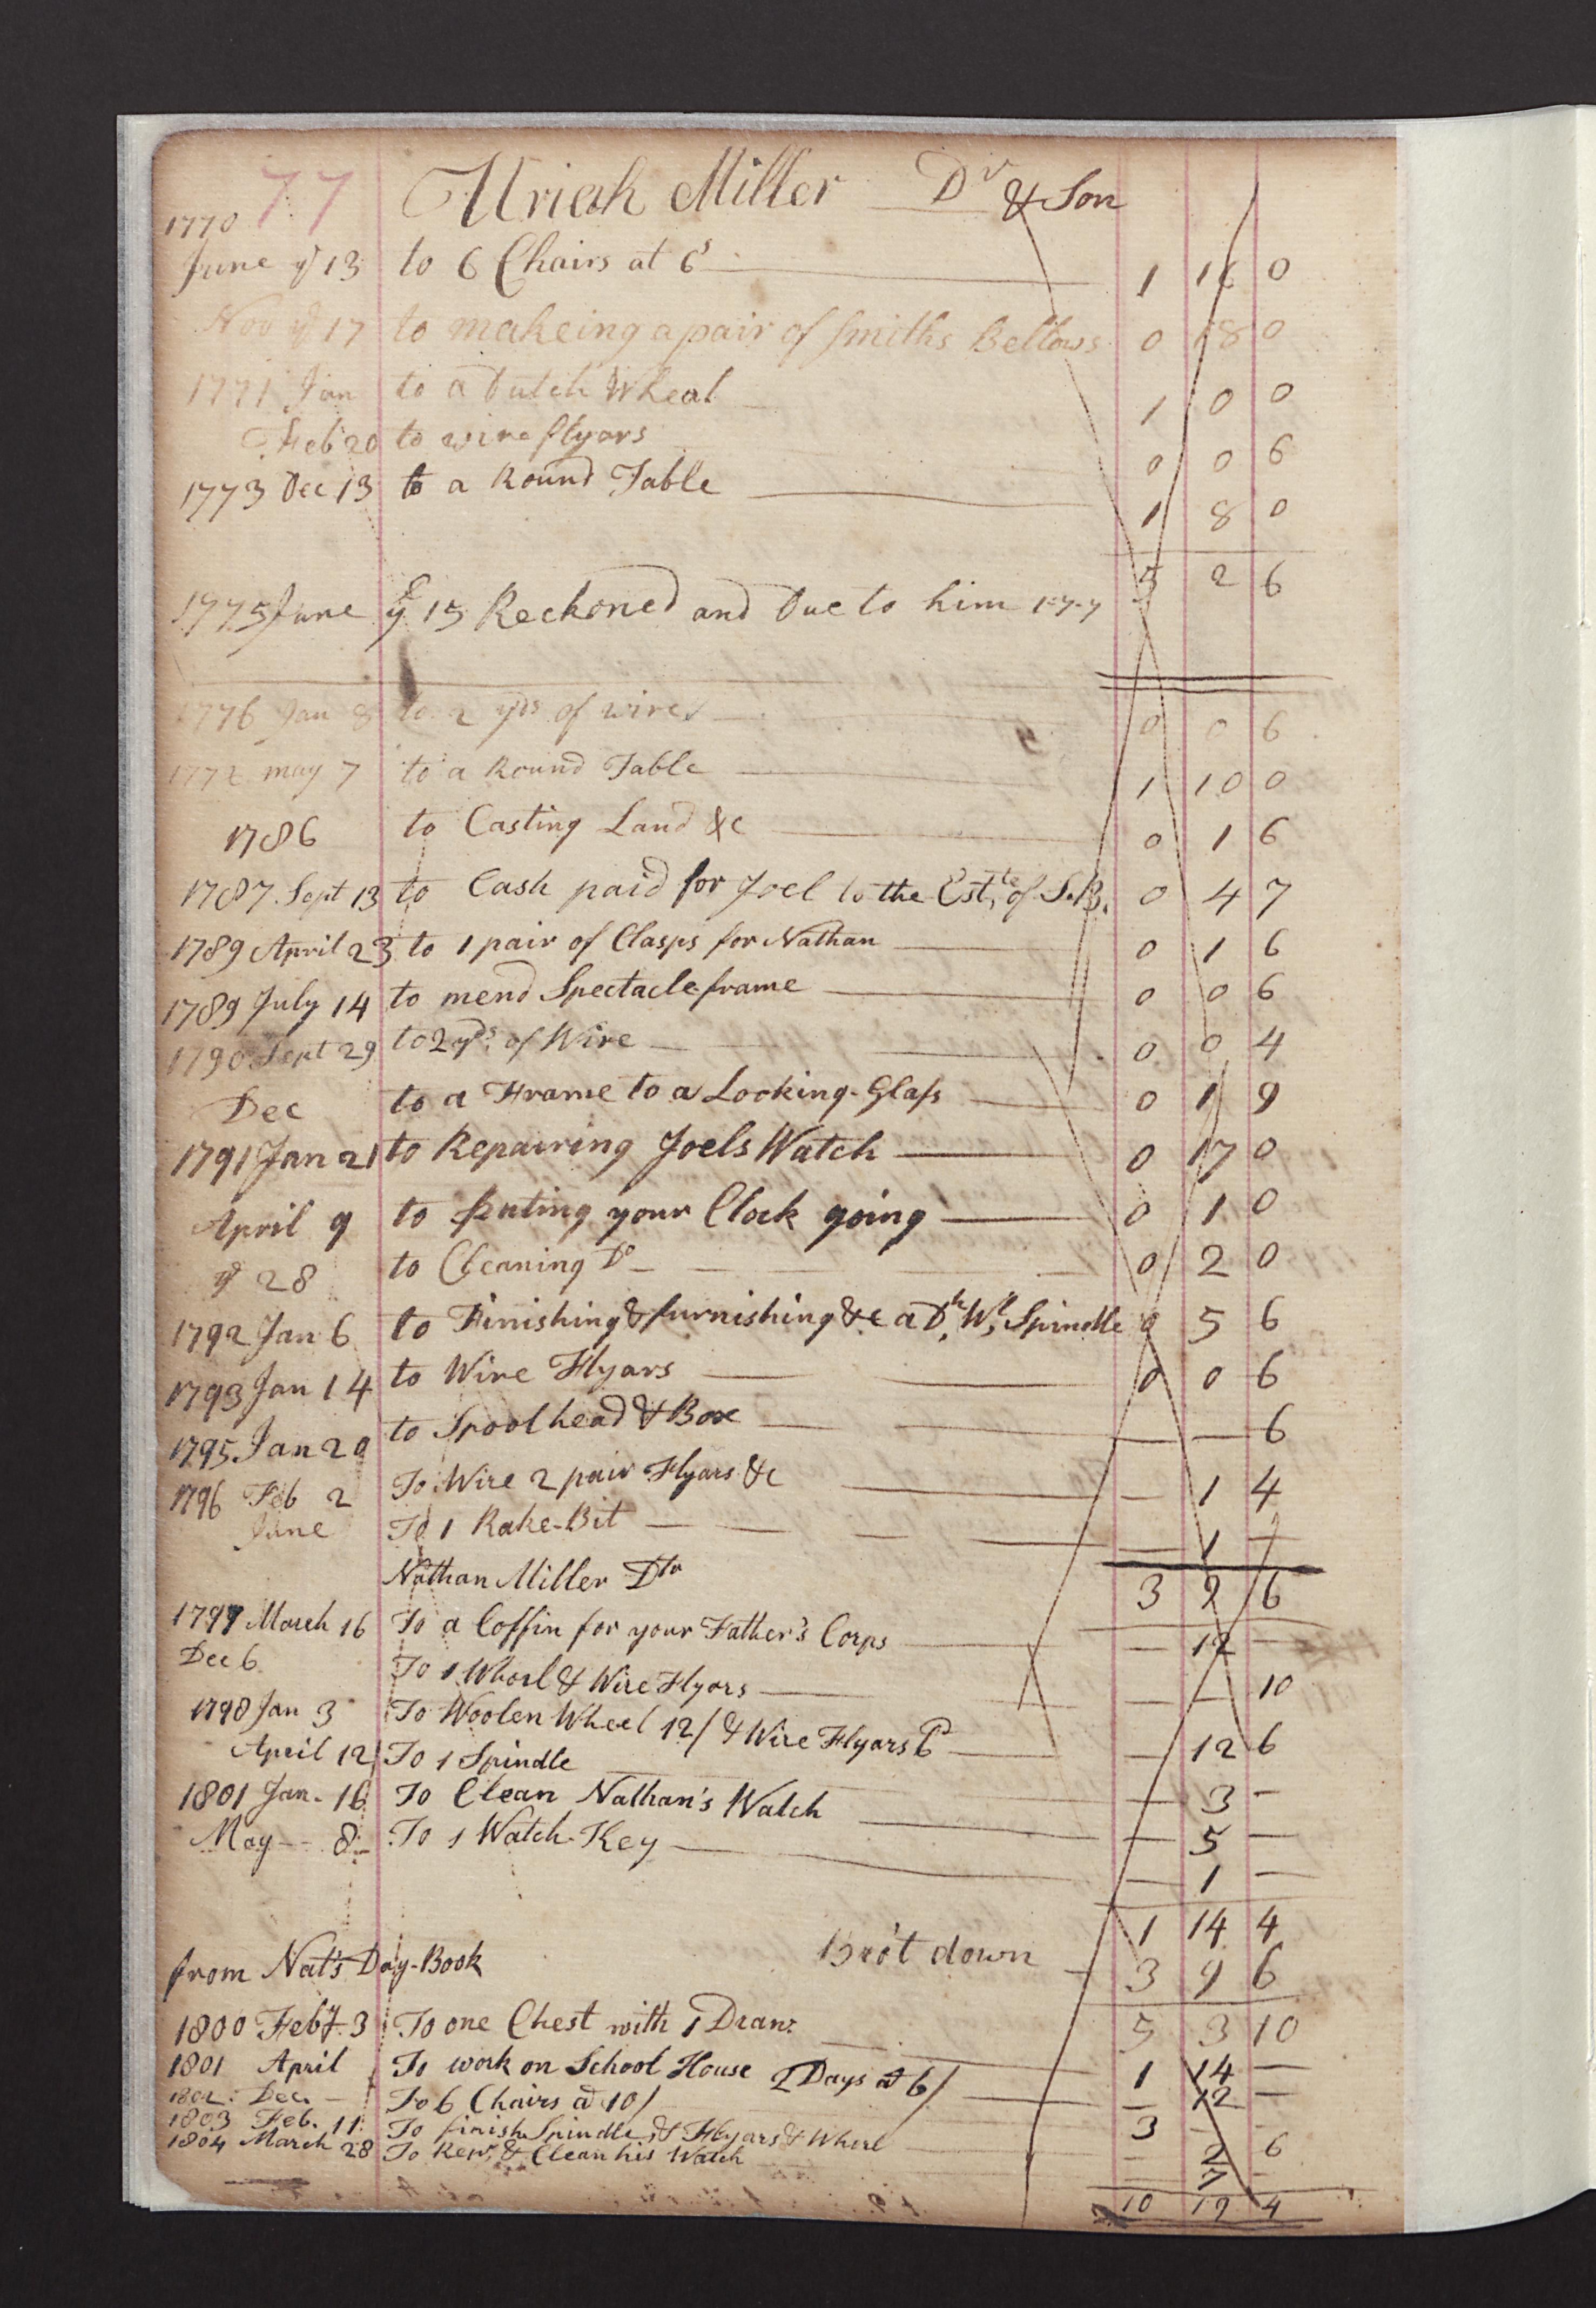 77 Uriah Miller Dr & Son
1770
June ye 13 to 6 Chairs at 6s 1 16 0
Nov ye 17 to makeing a pair of smiths Bellows 0 18 0
1771 Jan to a Dutch Wheal 1 0 0
Feb 20 to wire flyars 0 0 6
1773 Dec 13 to a Round Table 1 8 0
5 2 6
1775 June ye 15 Reckoned and Due to him 1-7-7
1776 Jan 8 to 2 yds of wire 0 0 6
may 7 to a Round Table 1 10 0
1786 to Casting Land &c 0 1 6
1787 Sept 13 to Cash paid for Joel to the Estte of S.B. 0 4 7
1789 April 23 to 1 pair of Clasps for Nathan 0 1 6
1789 July 14 to mend Spectacle frame 0 0 6
1790 Sept 29 to 2 yds of Wire 0 0 4
Dec to a Frame to a Looking-Glass 0 1 9
1791 Jan 21 to Repairing Joels Watch 0 17 0
April 9 to puting your Clock going 0 1 0
ye 28 to Cleaning Do 0 2 0
1792 Jan 6 to Finishing & furnishing &c a Dh Wl Spindle 0 5 6
1793 Jan 14 to Wire Flyars 0 0 6
1795 Jan 29 to Spool head & Box — — 6
1796 Feb 2 To Wire 2 pair Flyars &c — 1 4
June To 1 Rake-Bit — 1 —
Nathan Miller Dtr 3 9 6
1797 March 16 To a Coffin for your Father's Corps — 12 —
Dec 6 To 1 Whorl & Wire Flyors — — 10
1798 Jan 3 To Woolen Wheel 12/ & Wire Flyars 6d — 12 6
April 12 To 1 Spindle — 3 —
1801 Jan. 16 To Clean Nathan's Watch — 5 —
May 8 To 1 Watch-Key — 1 —
1 14 4
from Nat's Day-Book Bro't down 3 9 6
5 3 10
1800 Feby. 3 To one Chest with 1 Drawr 1 14 —
1801 April To work on School House 2 Days at 6/ — 12 —
1802 Dec. To 6 Chairs at 10/ 3 — —
1803 Feb. 11 To finish Spindle, & Flyars & Whirl — 2 6
1804 March 28 To Repr. & Clean his Watch — 7 —
10 19 4